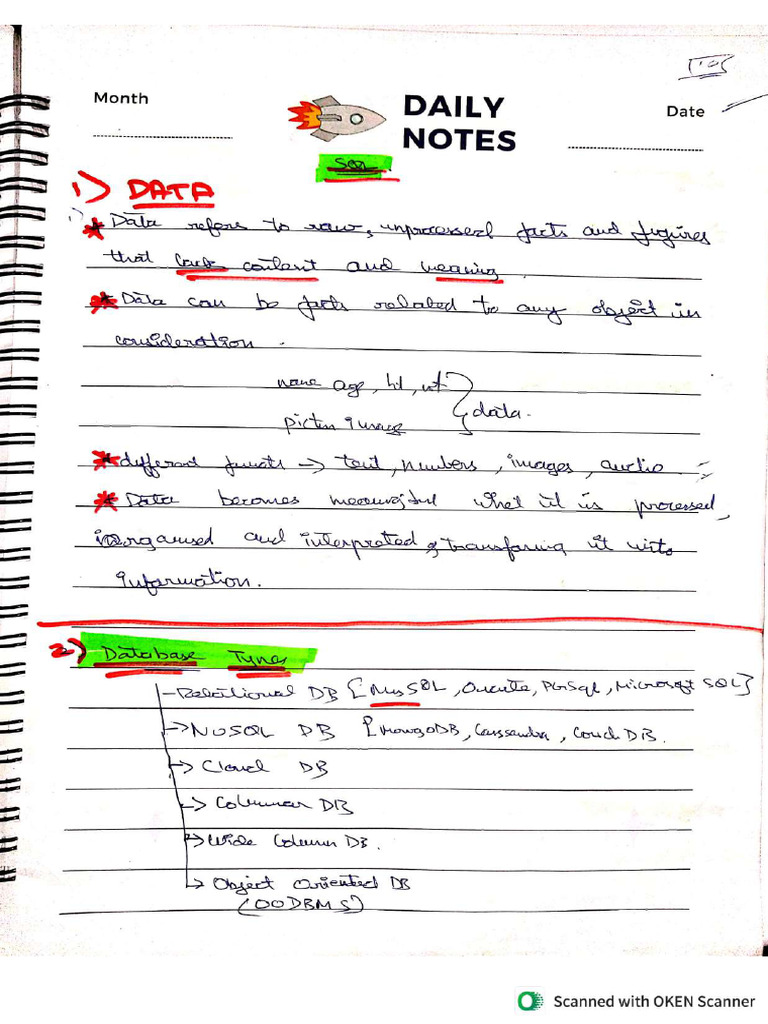 Month
DAILY
NOTES
Date
SQL
1) DATA
* Data refers to raw, unprocessed facts and figures
that lack content and meaning.
* Data can be facts related to any object in
consideration.
name age, ht, wt
data.
* different formats → text, numbers, images, audio
* Data becomes meaningful it is processed,
organised and interpreted & transforming it into
information.
2) Database Types
Relational DB {MySQL, Oracle, PGSql, Microsoft SQL}
→ NoSQL DB {MongoDB, Cassandra, Couch DB.
→ Cloud DB
→ Columnar DB
→ Wide Column DB.
→ Object Oriented DB
(OODBMS)
Scanned with OKEN Scanner